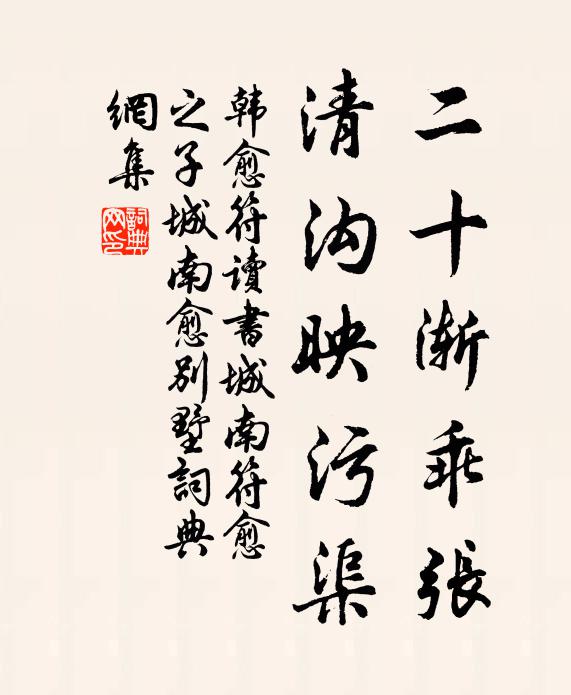 二十渐乖張
清沟映污渠
韩愈符讀書城南符愈
之子城南愈别墅詞典
網集
詞典网印